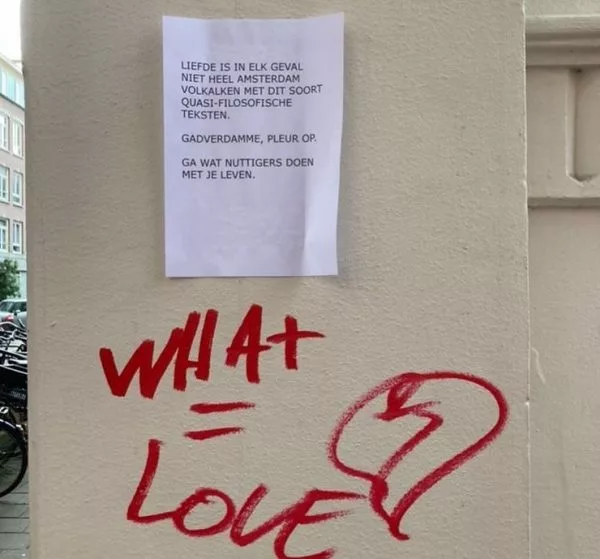 LIEFDE IS IN ELK GEVAL
NIET HEEL AMSTERDAM
VOLKALKEN MET DIT SOORT
QUASI-FILOSOFISCHE
TEKSTEN.
GADVERDAMME, PLEUR OP.
GA WAT NUTTIGERS DOEN
MET JE LEVEN.
WHAT
=
LOVE